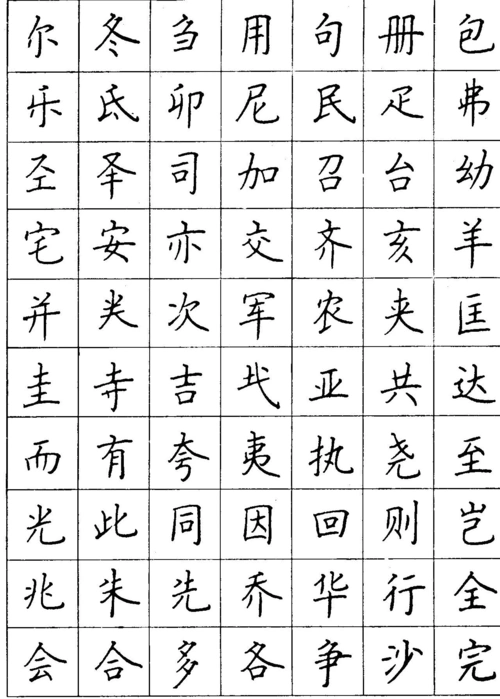 尔 冬 刍 用 句 册 包
乐 氐 卯 尼 民 疋 弗
圣 司 加 召 台 幼
宅 安 亦 交 齐 亥 羊
并 次 军 农 夹 匡
圭 寺 吉 亚 共 达
而 有 夸 夷 执 尧 至
光 此 同 因 回 则 岂
兆 朱 先 乔 华 行 全
会 合 多 各 争 沙 完